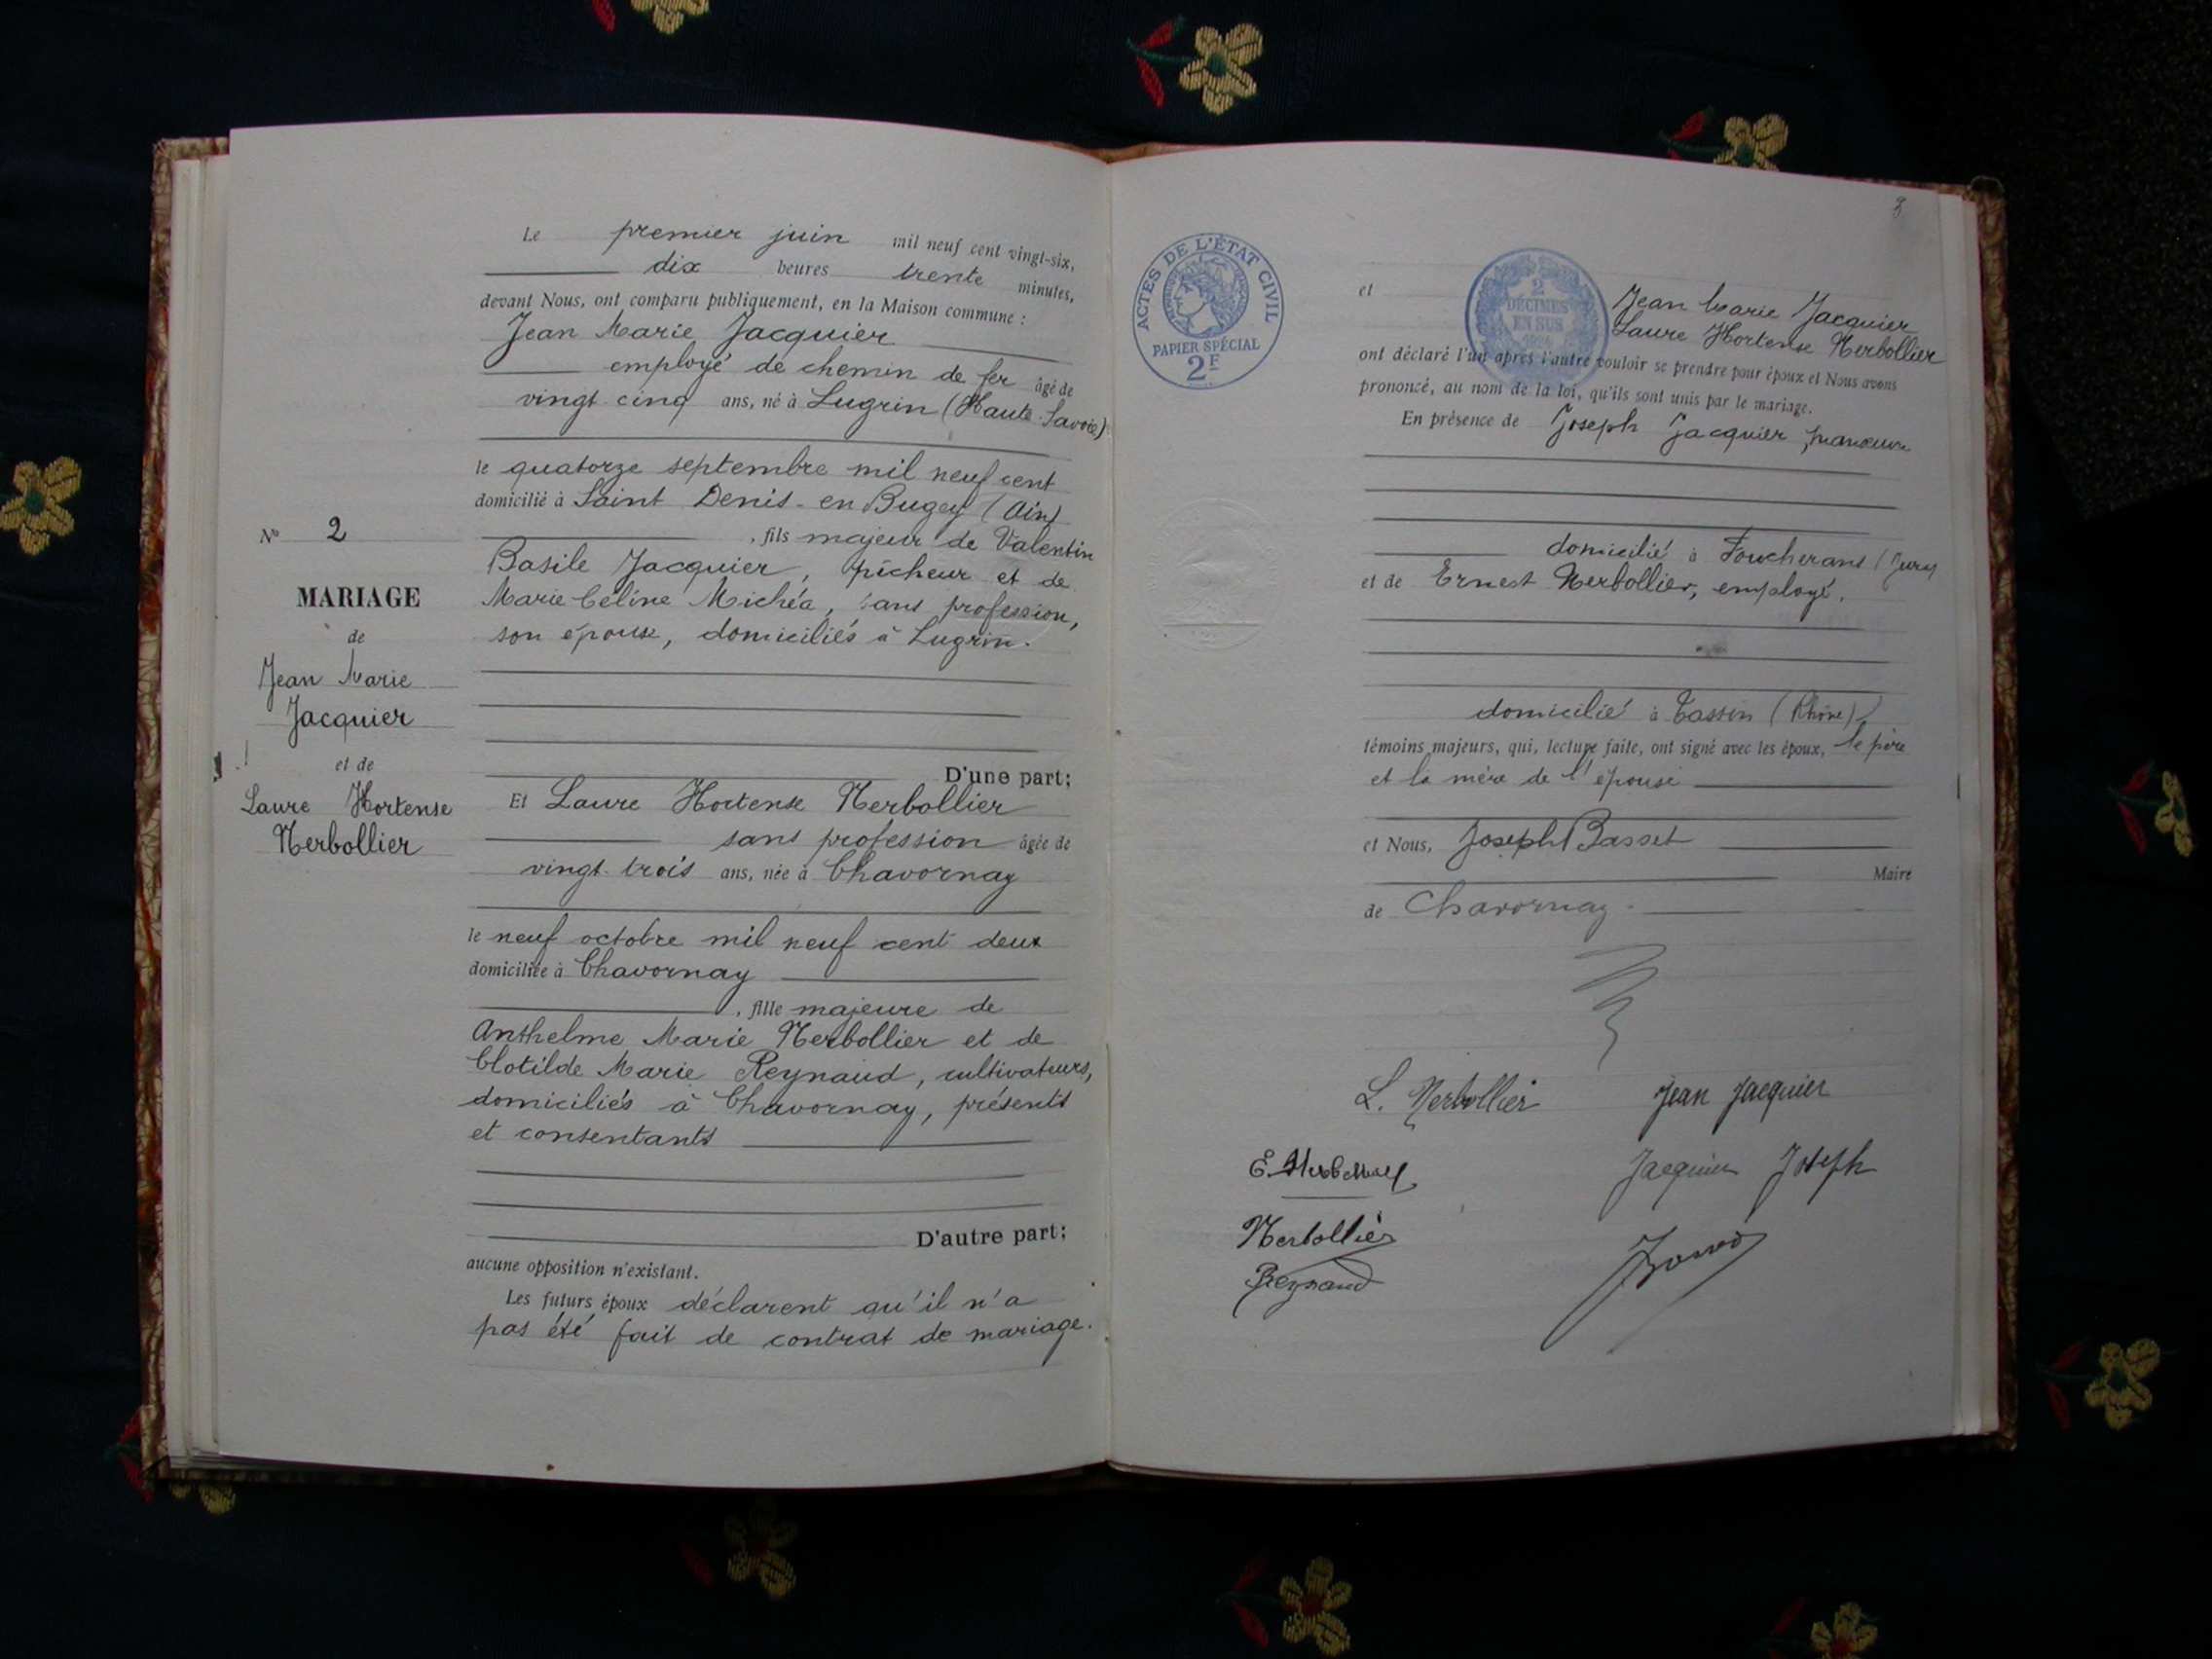 N° 2
MARIAGE
de
Jean Marie
Jacquier
et de
Laure Hortense
Nerbollier
Le premier juin mil neuf cent vingt-six,
dix heures trente minutes,
devant Nous, ont comparu publiquement, en la Maison commune :
Jean Marie Jacquier
employé de chemin de fer âgé de
vingt-cinq ans, né à Lugrin (Haute-Savoie)
le quatorze septembre mil neuf cent
domicilié à Saint Denis-en Bugey (Ain)
, fils majeur de Valentin
Basile Jacquier, pêcheur et de
Marie Céline Michéa, sans profession,
son épouse, domiciliés à Lugrin.
D'une part;
Et Laure Hortense Nerbollier
sans profession âgée de
vingt-trois ans, née à Chavornay
le neuf octobre mil neuf cent deux
domiciliée à Chavornay
, fille majeure de
Anthelme Marie Nerbollier et de
Clotilde Marie Reynaud, cultivateurs,
domiciliés à Chavornay, présents
et consentants
D'autre part;
aucune opposition n'existant.
Les futurs époux déclarent qu'il n'a
pas été fait de contrat de mariage.
3
ACTES DE L'ÉTAT CIVIL
PAPIER SPÉCIAL
2F
2
DÉCIMES
EN SUS
Jean Marie Jacquier
et Laure Hortense Nerbollier
ont déclaré l'un après l'autre vouloir se prendre pour époux et Nous avons
prononcé, au nom de la loi, qu'ils sont unis par le mariage.
En présence de Joseph Jacquier, manœuvre
domicilié à Foucherans (Jura)
et de Ernest Nerbollier, employé.
domicilié à Tassin (Rhône)
témoins majeurs, qui, lecture faite, ont signé avec les époux, le père
et la mère de l'épouse
et Nous, Joseph Basset
Maire
de Chavornay.
L. Nerbollier Jean Jacquier
E. Nerbollier Jacquier Joseph
Nerbollier
Reynaud